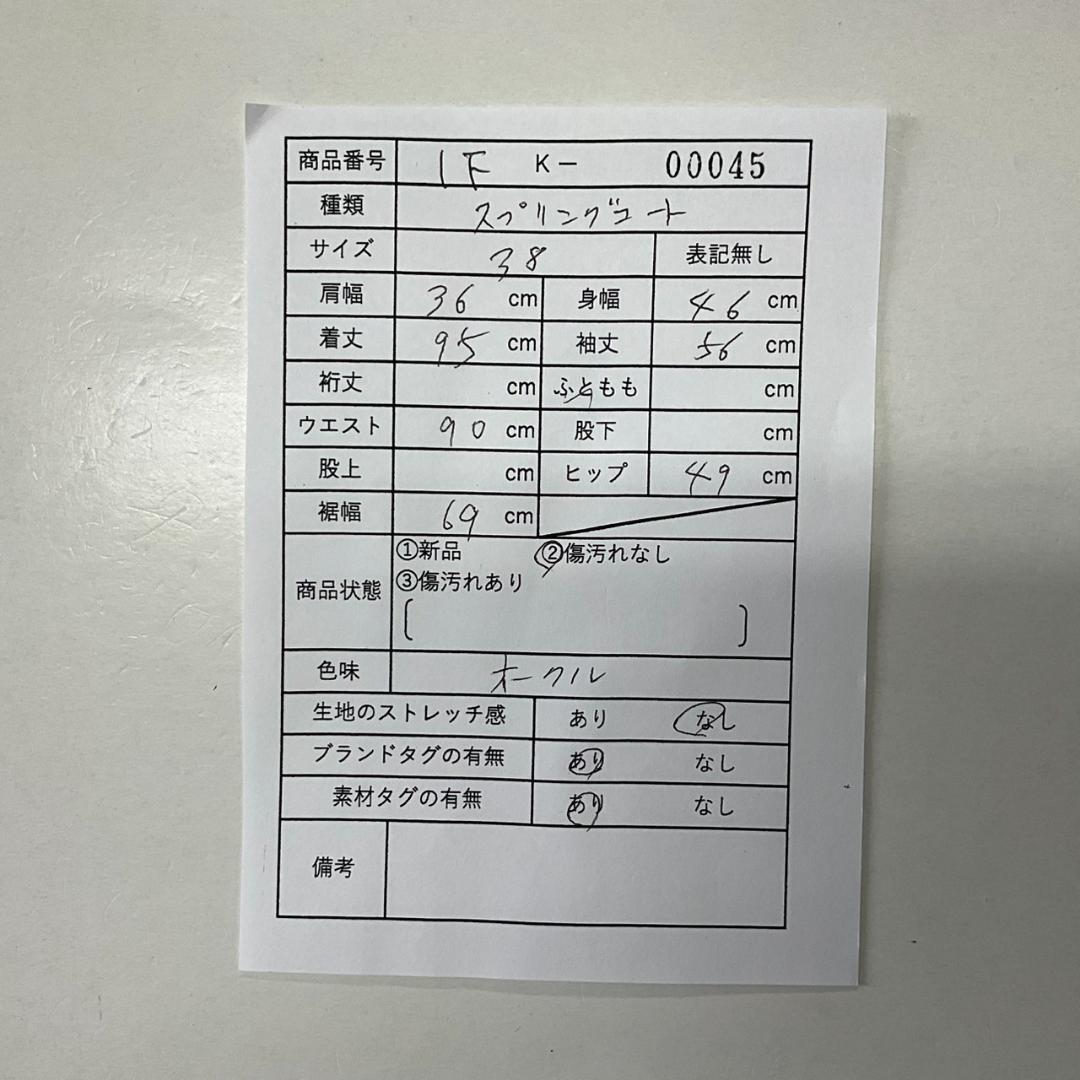 商品番号 1F K- 00045
種類 スプリングコート
サイズ 38 表記無し
肩幅 36 cm 身幅 46 cm
着丈 95 cm 袖丈 56 cm
裄丈 cm ふともも cm
ウエスト 90 cm 股下 cm
股上 cm ヒップ 49 cm
裾幅 69 cm
①新品 ②傷汚れなし
商品状態 ③傷汚れあり
[ ]
色味 オークル
生地のストレッチ感 あり なし
ブランドタグの有無 あり なし
素材タグの有無 あり なし
備考